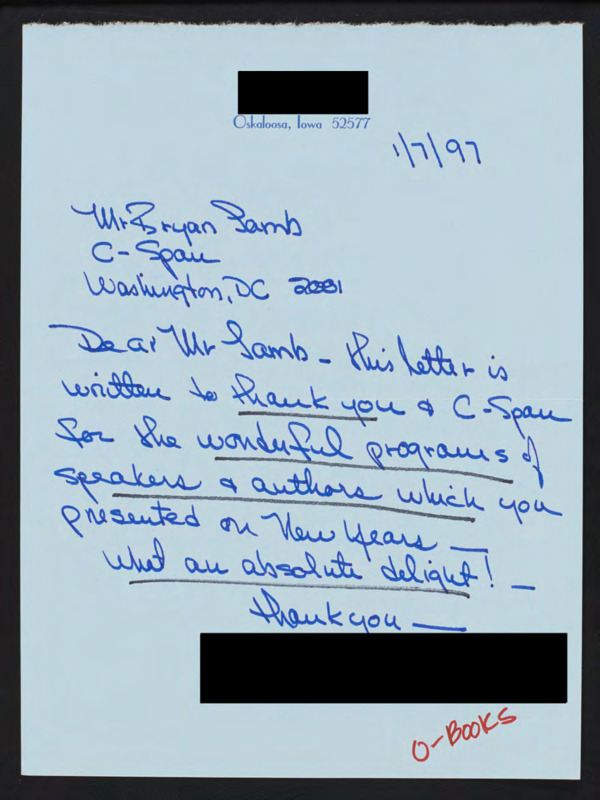 Oskaloosa, Iowa 52577
1/7/97
Mr Bryan Lamb
C-Span
Washington, DC 20001
Dear Mr Lamb - this letter is
written to thank you & C-Span
for the wonderful programs of
speakers & authors which you
presented on New Years —
What an absolute delight! —
thank you —
O-BOOKS